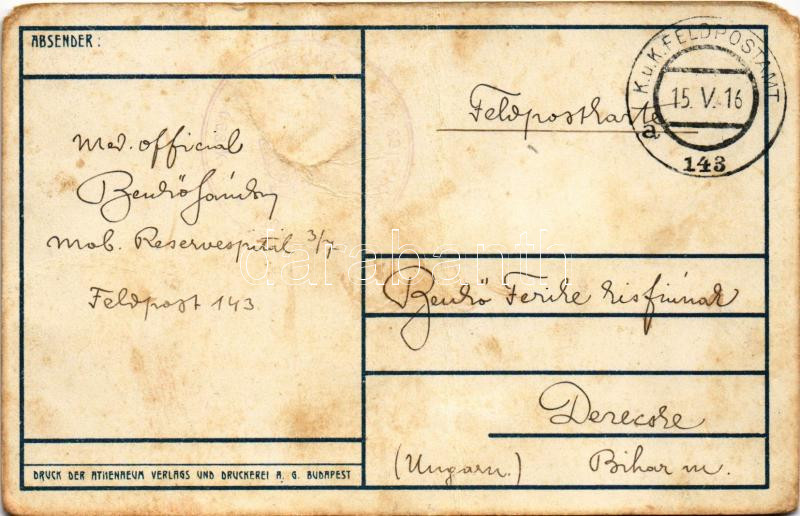 ABSENDER:
Med. official
Benkő Sándor
Mob. Reservespital 3/7
Feldpost 143
DRUCK DER ATHENAEUM VERLAGS UND DRUCKEREI A. G. BUDAPEST
K.u.K. FELDPOSTAMT
15. V. 16
a
143
Feldpostkarte
Benkő Ferike kisfiúnak
Derecske
(Ungarn.) Bihar m.
darabanth